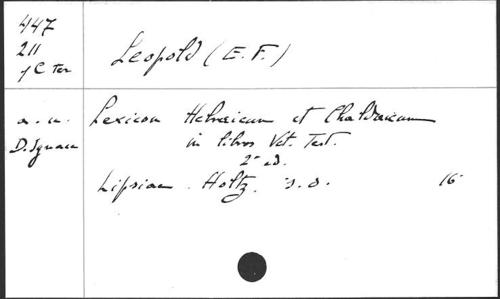 447
211
Leopold (E. F.)
a. n. Lexicon Hebraicum et Chaldaicum
in libros Vet. Test.
2ª ed.
Lipsiae. Holtz. s.d. 16